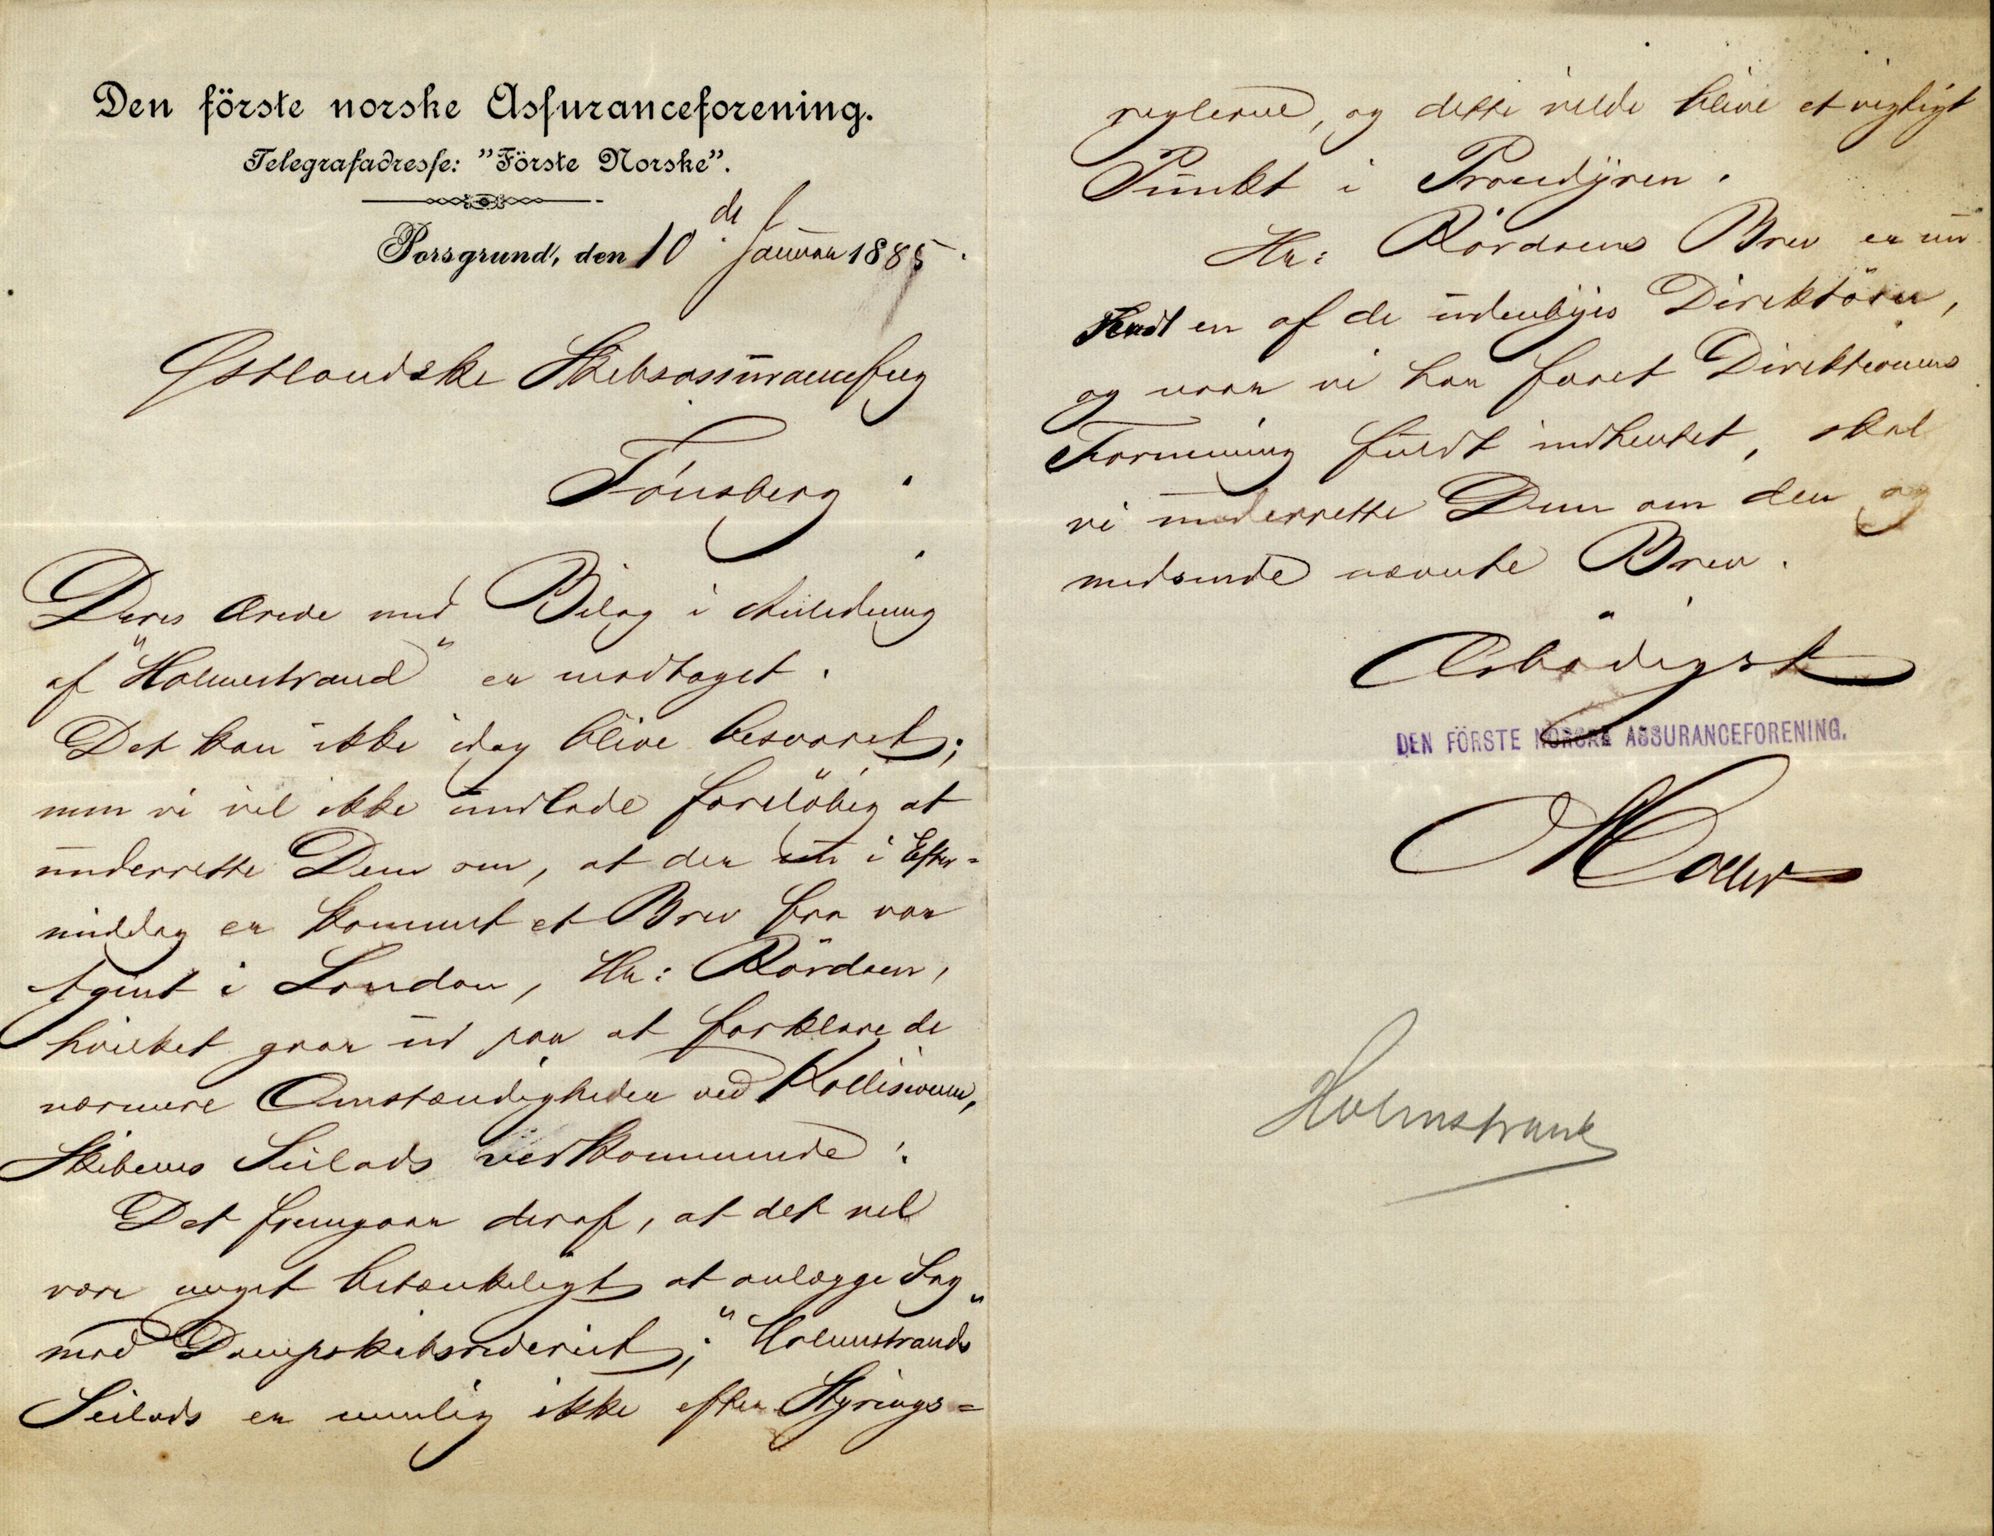 Den förste norske Assuranceforening.
Telegrafadresse: "Förste Norske".
Porsgrund, den 10de Januar 1885.
Østlandske Skibsassuranceforg
Tönsberg.
Deres Ærede med Bilag i Anledning
af "Holmestrand" er modtaget.
Det kan ikke idag blive besvaret;
men vi vil ikke undlade foreløbig at
underrette Dem om, at der nu i Efter-
middag er kommet et Brev fra vor
Agent i London, Hr: Rördam,
hvilket gaar ud paa at forklare de
nærmere Omstændigheder ved Kollisionen,
Skibenes Seilads vedkommende.
Det fremgaar deraf, at det vil
være noget betænkeligt at anlægge Sag
mod Dampskibsrederiet; "Holmestrands"
Seilads er nemlig ikke efter Styrings-
reglerne, og dette vilde blive et vigtigt
Punkt i Proceduren.
Hr: Rördams Brev er nu
sendt en af de udenbyes Direktörer,
og naar vi har faaet Direktionens
Formening fuldt indhentet, skal
vi underrette Dem om den og
medsende nævnte Brev.
Ærbödigst
DEN FÖRSTE NORSKE ASSURANCEFORENING.
Holmstrand